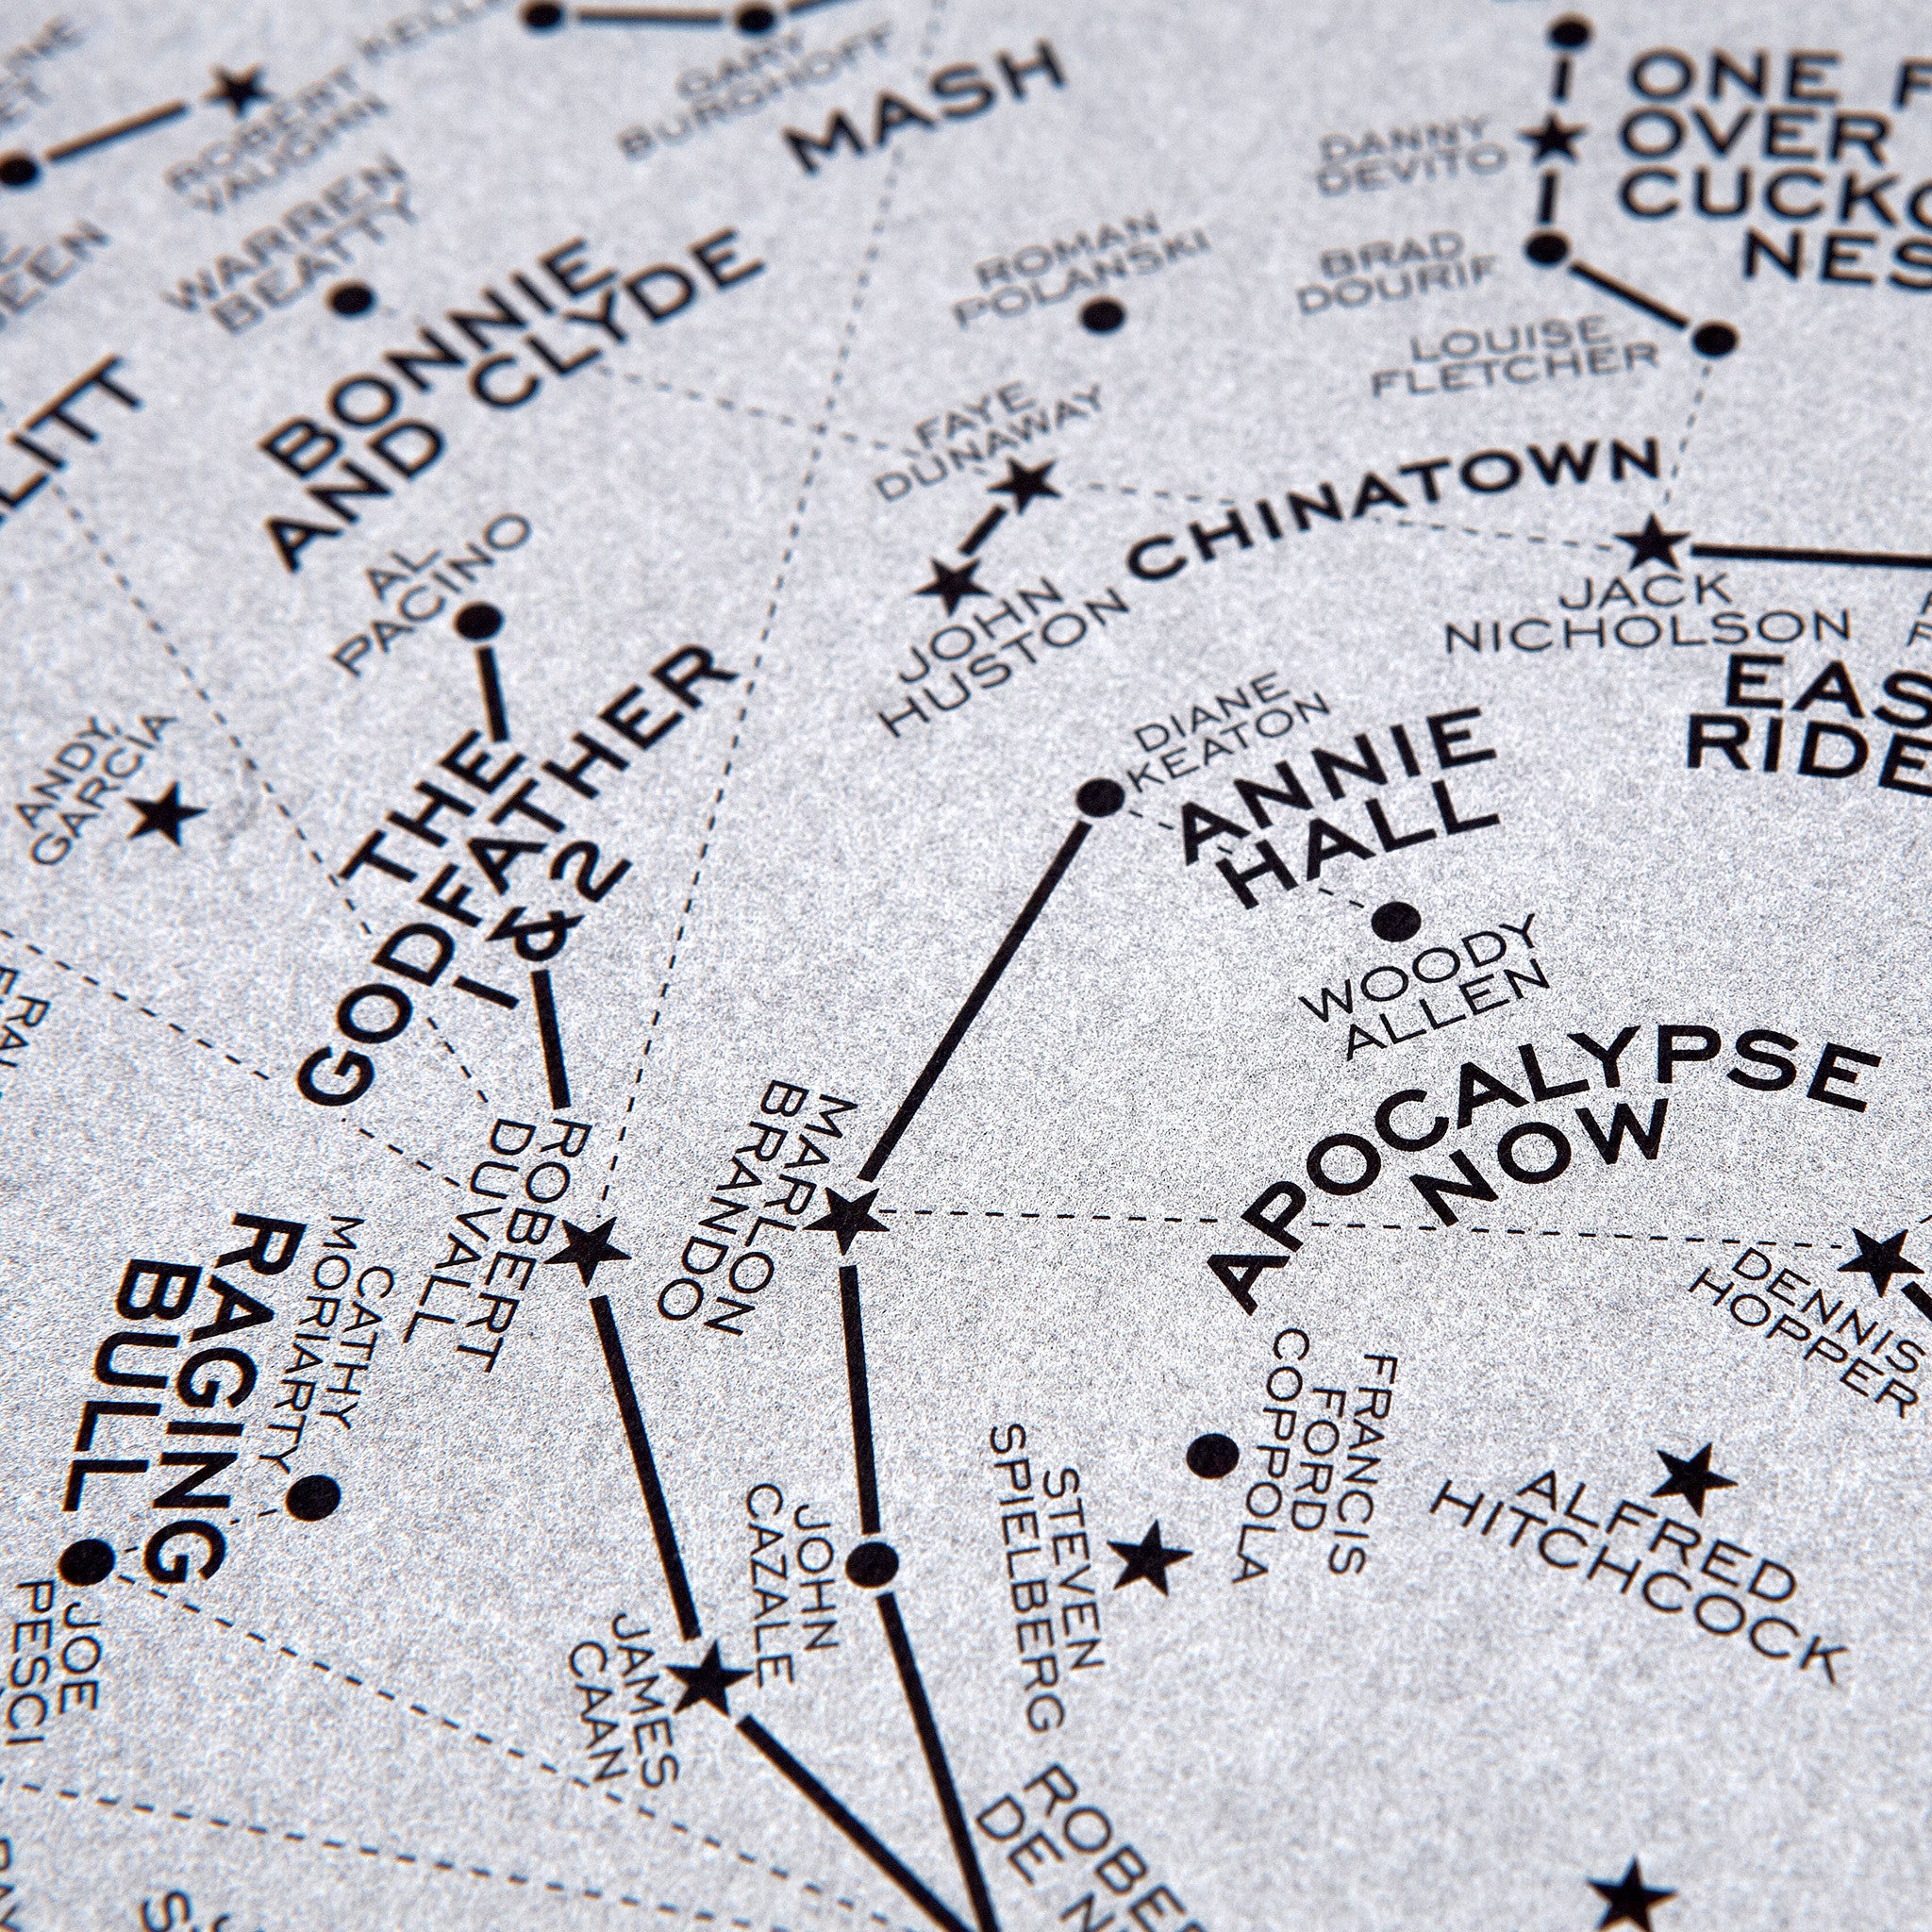 KELLY
ROBERT
VAUGHN
GARY
BURGHOFF
MASH
WARREN
BEATTY
BONNIE
AND CLYDE
ROMAN
POLANSKI
DANNY
DEVITO
ONE F
OVER
CUCKO
NES
BRAD
DOURIF
LOUISE
FLETCHER
FAYE
DUNAWAY
CHINATOWN
JOHN
HUSTON
JACK
NICHOLSON
EAS
RIDE
AL
PACINO
THE
GODFATHER
1 & 2
ANDY
GARCIA
DIANE
KEATON
ANNIE
HALL
WOODY
ALLEN
APOCALYPSE
NOW
MARLON
BRANDO
ROBERT
DUVALL
DENNIS
HOPPER
CATHY
MORIARTY
RAGING
BULL
JOE
PESCI
FRANCIS
FORD
COPPOLA
STEVEN
SPIELBERG
ALFRED
HITCHCOCK
JOHN
CAZALE
JAMES
CAAN
ROBER
DE N